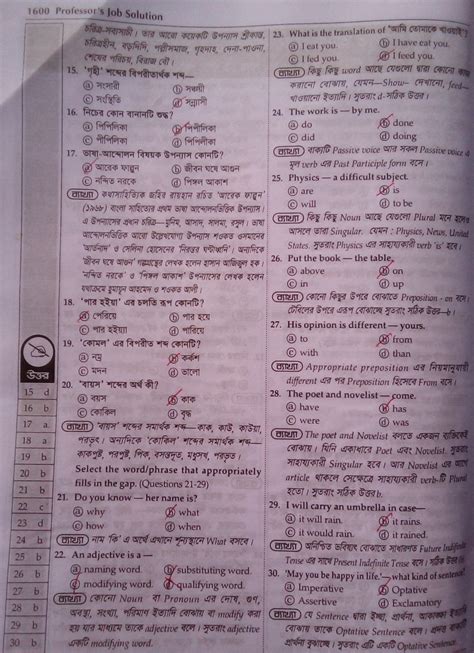 1600 Professor's Job Solution
চরিত্র-সব্যসাচী। তার আরো কয়েকটি উপন্যাস শ্রীকান্ত,
চরিত্রহীন, বড়দিদি, পল্লীসমাজ, গৃহদাহ, দেনা-পাওনা,
শেষের পরিচয়, বিরাজ বৌ।
15. 'গৃহী' শব্দের বিপরীতার্থক শব্দ—
ⓐ সংসারী ⓑ সঞ্চয়ী
ⓒ সংস্থিতি ⓓ সন্ন্যাসী
16. নিচের কোন বানানটি শুদ্ধ?
ⓐ পিপিলিকা ⓑ পিপীলিকা
ⓒ পীপিলিকা ⓓ পিপিলীকা
17. ভাষা-আন্দোলন বিষয়ক উপন্যাস কোনটি?
ⓐ আরেক ফাল্গুন ⓑ জীবন ঘষে আগুন
ⓒ নন্দিত নরকে ⓓ পিঙ্গল আকাশ
ব্যাখ্যা কথাসাহিত্যিক জহির রায়হান রচিত 'আরেক ফাল্গুন'
(১৯৬৮) বাংলা সাহিত্যের প্রথম ভাষা আন্দোলনভিত্তিক উপন্যাস।
এ উপন্যাসের প্রধান চরিত্র—মুনিম, আসাদ, সালমা, রসুল। ভাষা
আন্দোলনভিত্তিক আরো উল্লেখযোগ্য উপন্যাস শওকত ওসমানের
'আর্তনাদ' ও সেলিনা হোসেনের 'নিরন্তর ঘণ্টাধ্বনি'। অন্যদিকে
'জীবন ঘষে আগুন' গল্পগ্রন্থের লেখক হলেন হাসান আজিজুল হক।
'নন্দিত নরকে' ও 'পিঙ্গল আকাশ' উপন্যাসের লেখক হলেন
যথাক্রমে হুমায়ূন আহমেদ ও শওকত আলী।
18. 'পার হইয়া' এর চলতি রূপ কোনটি?
ⓐ পেরিয়ে ⓑ পার হয়ে
ⓒ পার হইয়্যা ⓓ পারিয়ে
19. 'কোমল' এর বিপরীত শব্দ কোনটি?
ⓐ নম্র ⓑ কর্কশ
ⓒ মদন ⓓ ভালো
20. 'বায়স' শব্দের অর্থ কী?
ⓐ বয়স ⓑ কাক
ⓒ কোকিল ⓓ বৃদ্ধ
ব্যাখ্যা 'বায়স' শব্দের সমার্থক শব্দ— কাক, কাউ, কাউয়া,
পরভৃৎ। অন্যদিকে 'কোকিল' শব্দের সমার্থক শব্দ—
কাকপুষ্ট, পরপুষ্ট, পিক, বসন্তদূত, মধুসখ, পরভৃত।
Select the word/phrase that appropriately
fills in the gap. (Questions 21-29)
21. Do you know — her name is?
ⓐ why ⓑ what
ⓒ how ⓓ when
ব্যাখ্যা নাম 'কি' এ অর্থে এখানে শূন্যস্থানে What বসবে।
22. An adjective is a —
ⓐ naming word. ⓑ substituting word.
ⓒ modifying word. ⓓ qualifying word.
ব্যাখ্যা কোনো Noun বা Pronoun এর দোষ, গুণ,
অবস্থা, সংখ্যা, পরিমাণ ইত্যাদি বোঝায় বা modify করা
হয় যার মাধ্যমে তাকে adjective বলে। সুতরাং adjective
একটি modifying word.
উত্তর
15 d
16 b
17 a
18 a
19 b
20 b
21 b
22 c
23 d
24 b
25 b
26 b
27 b
28 b
29 b
30 b
23. What is the translation of 'আমি তোমাকে খাওয়াই'?
ⓐ I eat you. ⓑ I have eat you.
ⓒ I fed you. ⓓ I feed you.
ব্যাখ্যা কিছু কিছু word আছে যেগুলো দ্বারা কোনো কাজ
করানো বোঝায়, যেমন—Show- দেখানো, feed—
খাওয়ানো ইত্যাদি। সুতরাং d-সঠিক উত্তর।
24. The work is — by me.
ⓐ do ⓑ done
ⓒ did ⓓ doing
ব্যাখ্যা বাক্যটি Passive voice আর সকল Passive voice এ
মূল verb এর Past Participle form বসে।
25. Physics — a difficult subject.
ⓐ are ⓑ is
ⓒ will ⓓ to be
ব্যাখ্যা কিছু কিছু Noun আছে যেগুলো Plural মনে হলেও
আসলে তারা Singular. যেমন : Physics, News, United
States. সুতরাং Physics এর সাহায্যকারী verb 'is' হবে।
26. Put the book — the table.
ⓐ above ⓑ on
ⓒ in ⓓ up
ব্যাখ্যা কোনো কিছুর উপরে বোঝাতে Preposition - on বসে।
টেবিলের উপরে এরূপ বোঝাচ্ছে সুতরাং সঠিক উত্তর—b।
27. His opinion is different — yours.
ⓐ to ⓑ from
ⓒ with ⓓ than
ব্যাখ্যা Appropriate preposition এর নিয়মানুযায়ী
different এর পর Preposition হিসেবে From বসে।
28. The poet and novelist — come.
ⓐ have ⓑ has
ⓒ were ⓓ are
ব্যাখ্যা The poet and Novelist বলতে একজন ব্যক্তিকেই
বোঝায়। যিনি একাধারে Poet এবং Novelist. সুতরাং
সাহায্যকারী Singular হবে। আর Novelist এর আগে
article থাকলে সেক্ষেত্রে সাহায্যকারী verb-টি Plural
হতো। সুতরাং সঠিক উত্তর b.
29. I will carry an umbrella in case—
ⓐ it will rain. ⓑ it rains.
ⓒ it would rain. ⓓ it rained.
ব্যাখ্যা অনিশ্চিত ভবিষ্যৎ বোঝাতে সাধারণত Future Indefinite
Tense এর সাথে Present Indefinite Tense বসে। সঠিক উত্তর b।
30. 'May you be happy in life.'—what kind of sentence?
ⓐ Imperative ⓑ Optative
ⓒ Assertive ⓓ Exclamatory
ব্যাখ্যা যে Sentence দ্বারা ইচ্ছা, প্রার্থনা, আকাঙ্ক্ষা ইত্যাদি
বোঝায় তাকে Optative Sentence বলে। প্রদত্ত
প্রার্থনা বুঝাচ্ছে। সুতরাং এটি একটি Optative Sentence.